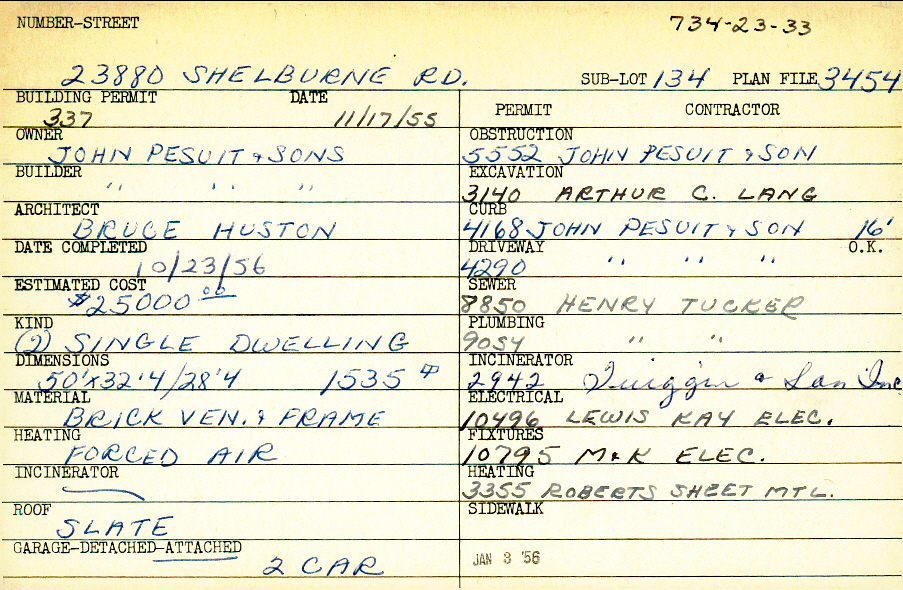 NUMBER-STREET 734-23-33
23880 SHELBURNE RD. SUB-LOT 134 PLAN FILE 3454
BUILDING PERMIT DATE
337 11/17/55
OWNER
JOHN PESUIT & SONS
BUILDER
" " "
ARCHITECT
BRUCE HUSTON
DATE COMPLETED
10/23/56
ESTIMATED COST
$25000.00
KIND
(2) SINGLE DWELLING
DIMENSIONS
50'x32'4/28'4 1535
MATERIAL
BRICK VEN. & FRAME
HEATING
FORCED AIR
INCINERATOR
ROOF
SLATE
GARAGE-DETACHED-ATTACHED
2 CAR
PERMIT CONTRACTOR
OBSTRUCTION
5552 JOHN PESUIT & SON
EXCAVATION
3140 ARTHUR C. LANG
CURB
4168 JOHN PESUIT & SON 16'
DRIVEWAY O.K.
4290 " " "
SEWER
8850 HENRY TUCKER
PLUMBING
9054 " "
INCINERATOR
2942 & Son Inc
ELECTRICAL
10496 LEWIS KAY ELEC.
FIXTURES
10795 M&K ELEC.
HEATING
3355 ROBERTS SHEET MTL.
SIDEWALK
JAN 3 '56